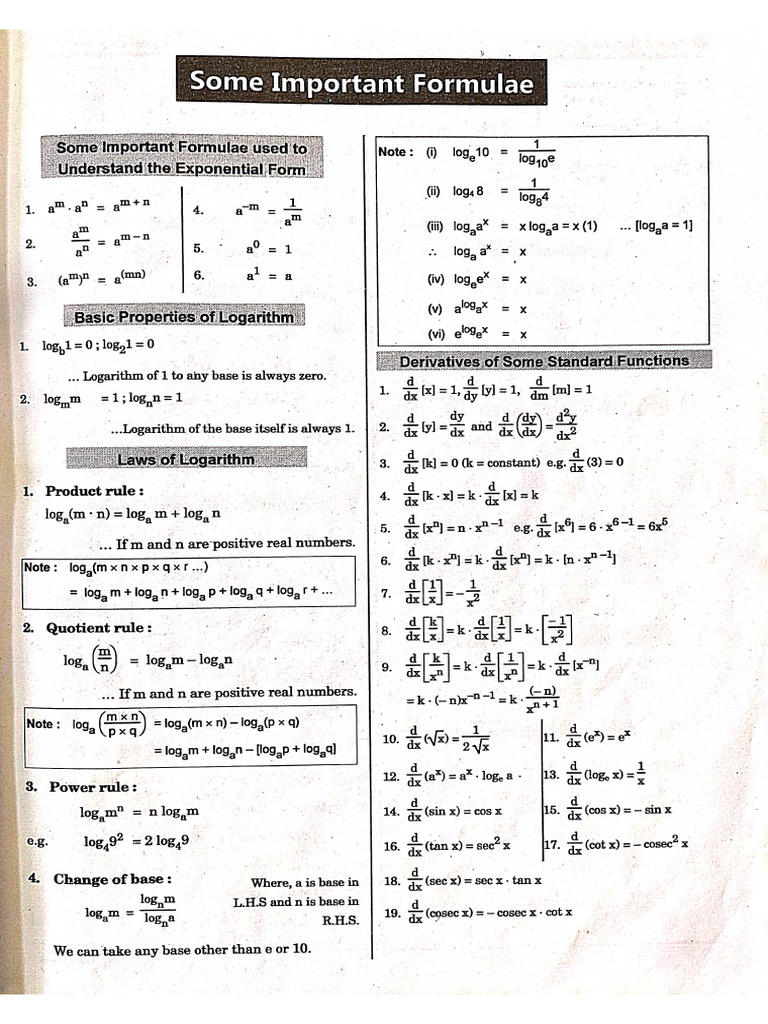 Some Important Formulae
Some Important Formulae used to
Understand the Exponential Form
1. a^m · a^n = a^(m + n)
2. a^m / a^n = a^(m – n)
3. (a^m)^n = a^(mn)
4. a^(–m) = 1 / a^m
5. a^0 = 1
6. a^1 = a
Basic Properties of Logarithm
1. log_b 1 = 0 ; log_2 1 = 0
... Logarithm of 1 to any base is always zero.
2. log_m m = 1 ; log_n n = 1
...Logarithm of the base itself is always 1.
Laws of Logarithm
1. Product rule :
log_a (m · n) = log_a m + log_a n
... If m and n are positive real numbers.
Note : log_a (m × n × p × q × r ...)
= log_a m + log_a n + log_a p + log_a q + log_a r + ...
2. Quotient rule :
log_a (m/n) = log_a m – log_a n
... If m and n are positive real numbers.
Note : log_a ((m × n)/(p × q)) = log_a (m × n) – log_a (p × q)
= log_a m + log_a n – [log_a p + log_a q]
3. Power rule :
log_a m^n = n log_a m
e.g. log_4 9^2 = 2 log_4 9
4. Change of base :
log_a m = log_n m / log_n a
Where, a is base in
L.H.S and n is base in
R.H.S.
We can take any base other than e or 10.
Note : (i) log_e 10 = 1 / log_10 e
(ii) log_4 8 = 1 / log_8 4
(iii) log_a a^x = x log_a a = x (1) ... [log_a a = 1]
∴ log_a a^x = x
(iv) log_e e^x = x
(v) a^(log_a x) = x
(vi) e^(log_e x) = x
Derivatives of Some Standard Functions
1. d/dx [x] = 1, d/dy [y] = 1, d/dm [m] = 1
2. d/dx [y] = dy/dx and d/dx (dy/dx) = d^2y/dx^2
3. d/dx [k] = 0 (k = constant) e.g. d/dx (3) = 0
4. d/dx [k · x] = k · d/dx [x] = k
5. d/dx [x^n] = n · x^(n – 1) e.g. d/dx [x^6] = 6 · x^(6 – 1) = 6x^5
6. d/dx [k · x^n] = k · d/dx [x^n] = k · [n · x^(n – 1)]
7. d/dx [1/x] = – 1/x^2
8. d/dx [k/x] = k · d/dx [1/x] = k · [– 1/x^2]
9. d/dx [k/x^n] = k · d/dx [1/x^n] = k · d/dx [x^(–n)]
= k · (– n)x^(–n – 1) = k · (– n)/x^(n + 1)
10. d/dx (√x) = 1/(2√x)
11. d/dx (e^x) = e^x
12. d/dx (a^x) = a^x · log_e a
13. d/dx (log_e x) = 1/x
14. d/dx (sin x) = cos x
15. d/dx (cos x) = – sin x
16. d/dx (tan x) = sec^2 x
17. d/dx (cot x) = – cosec^2 x
18. d/dx (sec x) = sec x · tan x
19. d/dx (cosec x) = – cosec x · cot x